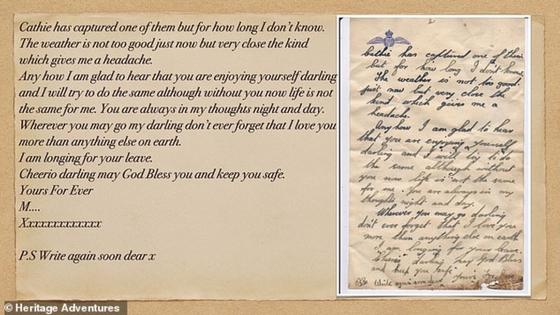 Cathie has captured one of them but for how long I don't know.
The weather is not too good just now but very close the kind
which gives me a headache.
Any how I am glad to hear that you are enjoying yourself darling
and I will try to do the same although without you now life is not
the same for me. You are always in my thoughts night and day.
Wherever you may go my darling don't ever forget that I love you
more than anything else on earth.
I am longing for your leave.
Cheerio darling may God Bless you and keep you safe.
Yours For Ever
M....
Xxxxxxxxxxxxx
P.S Write again soon dear x
2
Cathie has captured one of them
but for how long I don't know.
The weather is not too good
just now but very close the
kind which gives me a
headache.
Any how I am glad to hear
that you are enjoying yourself
darling and I will try to do
the same although without
you now life is not the same
for me. You are always in my
thoughts night and day.
Wherever you may go darling
don't ever forget that I love you
more than anything else on earth
I am longing for your leave.
Cheerio darling may God Bless
and keep you safe. Yours
Write again soon dear
© Heritage Adventures